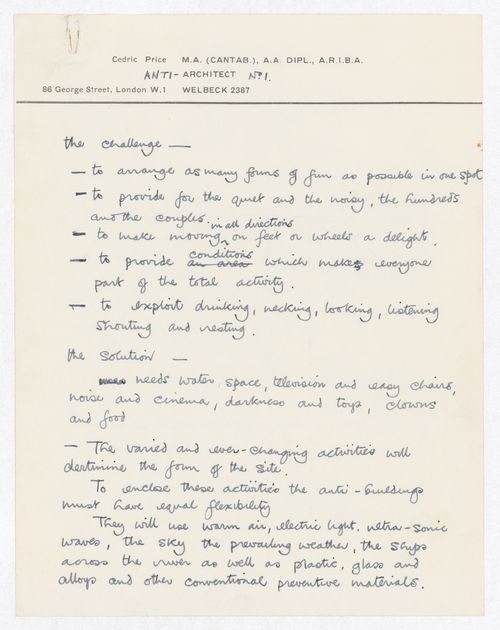 Cedric Price M.A. (CANTAB.), A.A. DIPL., A.R.I.B.A.
ANTI - ARCHITECT No 1.
86 George Street, London W.1 WELBECK 2387
the challenge —
— to arrange as many forms of fun as possible in one spot
— to provide for the quiet and the noisy, the hundreds
and the couples.
in all directions
— to make moving on feet or wheels a delight.
conditions
— to provide an area which makes everyone
part of the total activity.
— to exploit drinking, necking, looking, listening
shouting and resting.
the solution —
needs water, space, television and easy chairs,
noise and cinema, darkness and toys, clowns
and food
— The varied and ever-changing activities will
dertimine the form of the site.
To enclose these activities the anti-buildings
must have equal flexibility
They will use warm air, electric light, ultra-sonic
waves, the sky the prevailing weather, the ships
across the river as well as plastic, glass and
alloys and other conventional preventive materials.